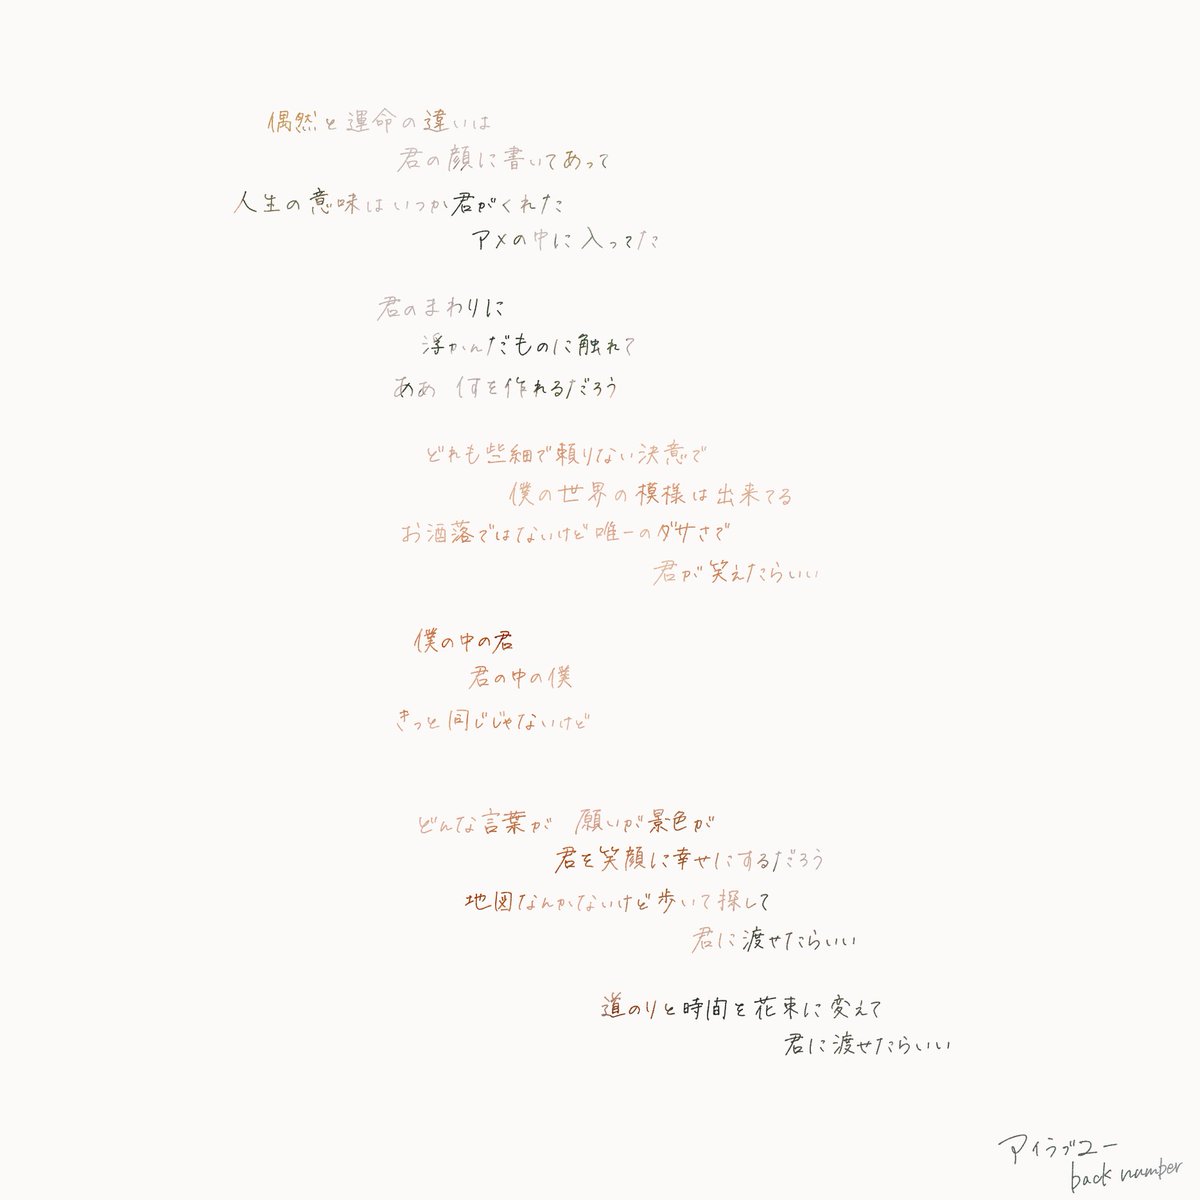 偶然と運命の違いは
君の顔に書いてあって
人生の意味はいつか君がくれた
アメの中に入ってた
君のまわりに
浮かんだものに触れて
ああ 何を作れるだろう
どれも些細で頼りない決意で
僕の世界の模様は出来てる
お洒落ではないけど唯一のダサさで
君が笑えたらいい
僕の中の君
君の中の僕
きっと同じじゃないけど
どんな言葉が 願いが景色が
君を笑顔に幸せにするだろう
地図なんかないけど歩いて探して
君に渡せたらいい
道のりと時間を花束に変えて
君に渡せたらいい
アイラブユー
back number